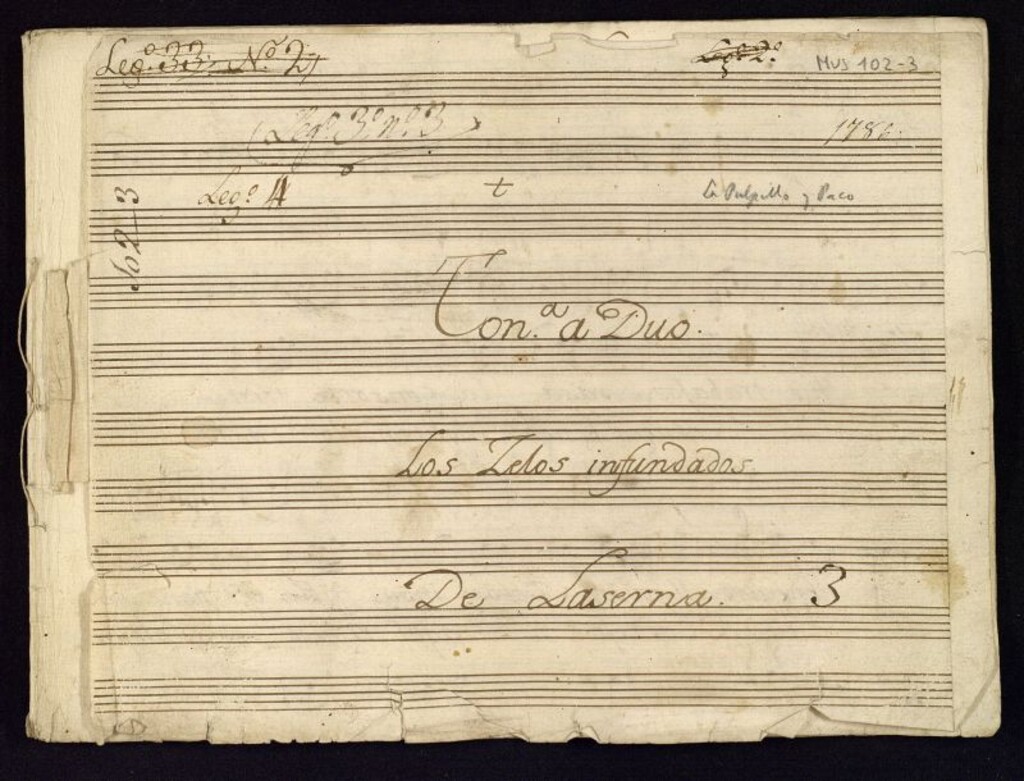 Leg.º 33. Nº 21
Leg.º 2.º
MUS 102-3
Leg.º 3.º n.º 3
1786.
Leg.º 4
t
La Pulpillo y Paco
102-3
Ton.ª a Duo.
Los Zelos infundados
De Laserna.
3